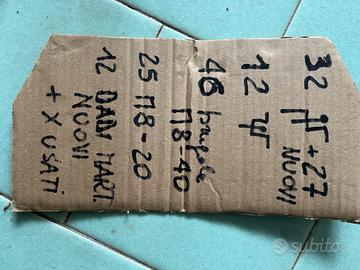 32 + 27 NUOVI
12
46 brugole M8-40
25 M8-20
12 DADI MART. NUOVI + X USATI
subito